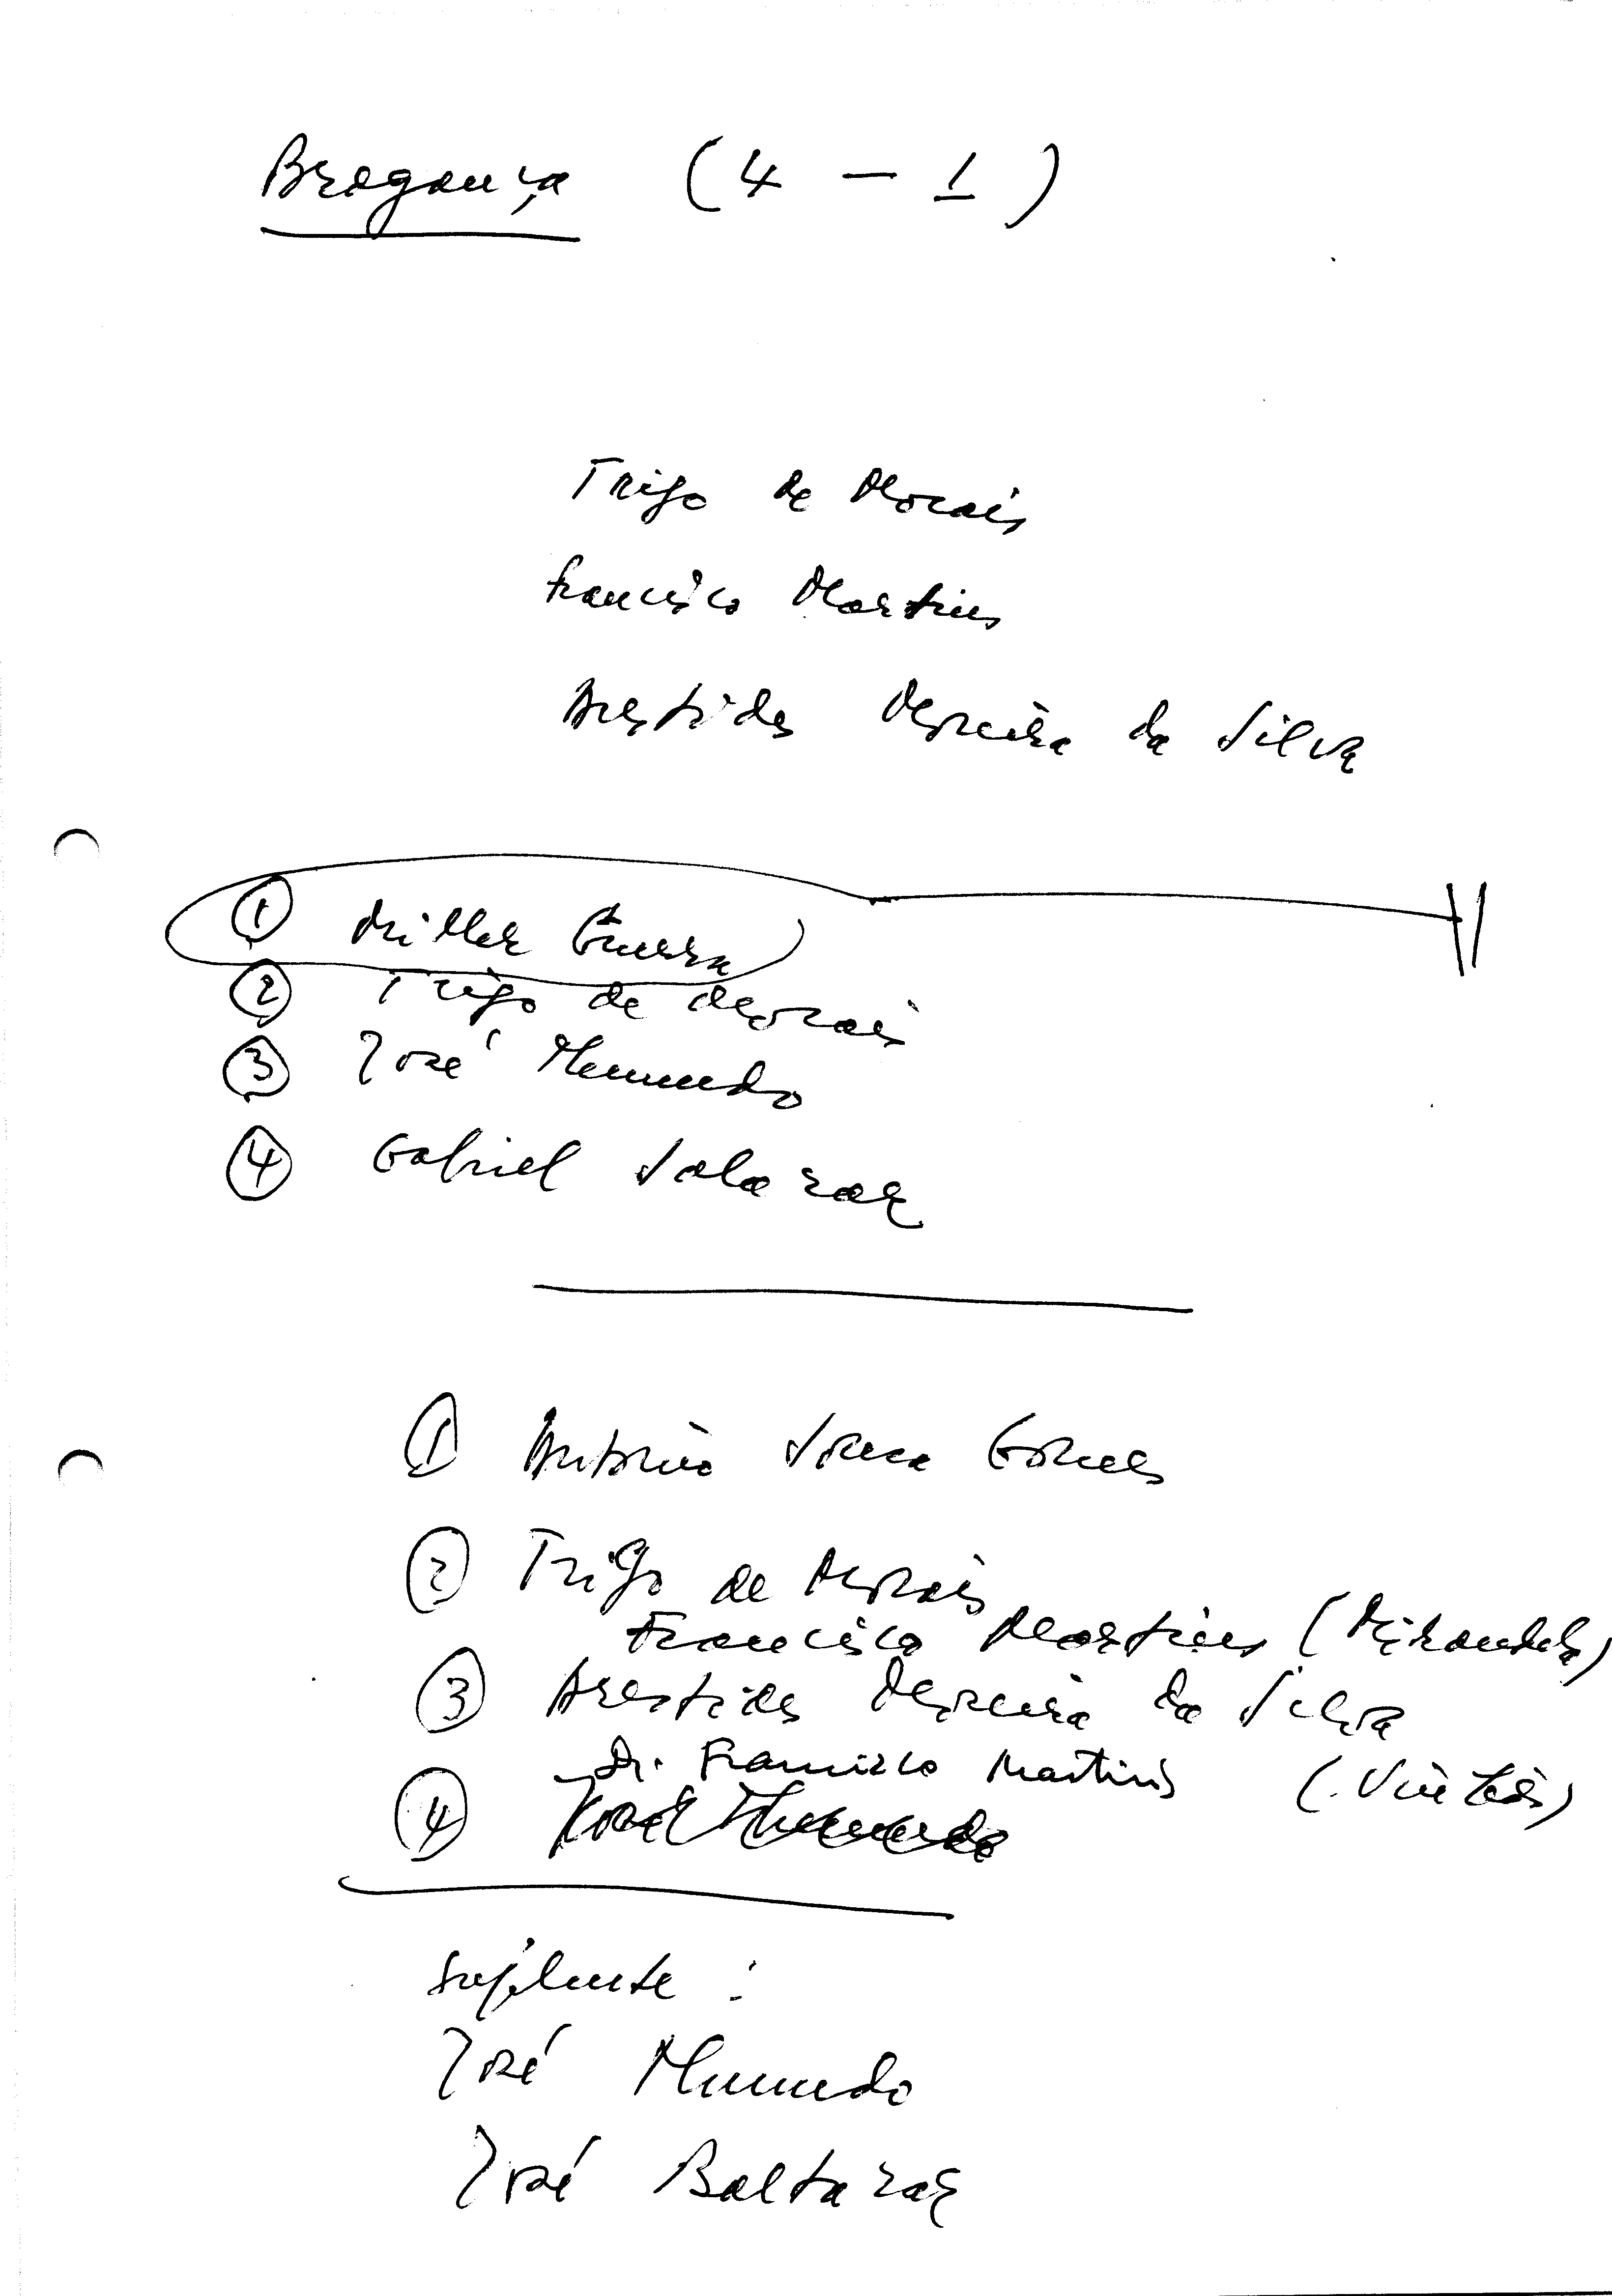 Bragança (4 - 1)
Trigo de Morais
Francisco Martins
Arestides Moreira da Silva
1 Miller Guerra
2 Trigo de Morais
3 José
4 Gabriel Salazar
1 António Sousa Gomes
2 Trigo de Morais
Francisco Martins (Mirandela)
3 Arestides Moreira da Silva
Dr. Francisco Martins
4 José
Suplente :
José
José Baltazar